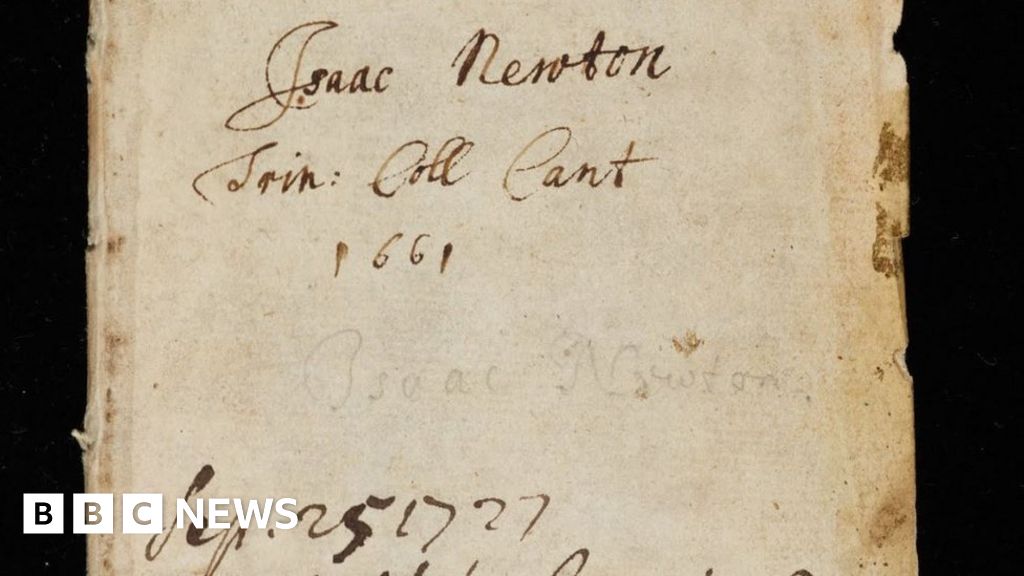 Isaac Newton
Trin: Coll Cant
1661
Isaac Newton
Sep. 25 1727
BBC NEWS